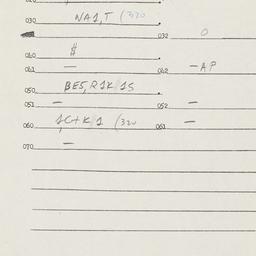 030 NA1,T (320
032 O
$
060
061 — 062 —AP
BE5,R1K 1S
050
051 — 052 —
1C+K 1 (320
060 061 —
—
070